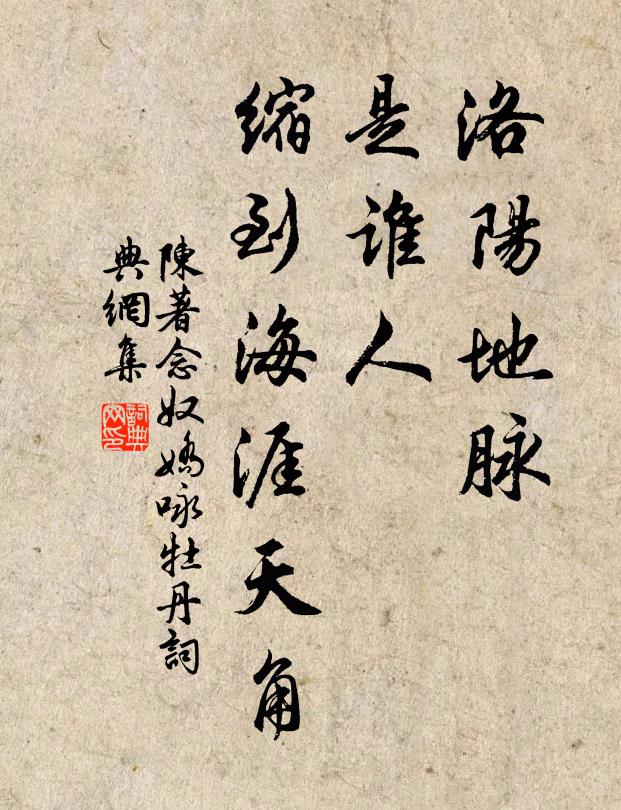 洛陽地脉
是誰人
缩到海涯天角
陳著念奴嬌咏牡丹詞
典網集
詞典網印